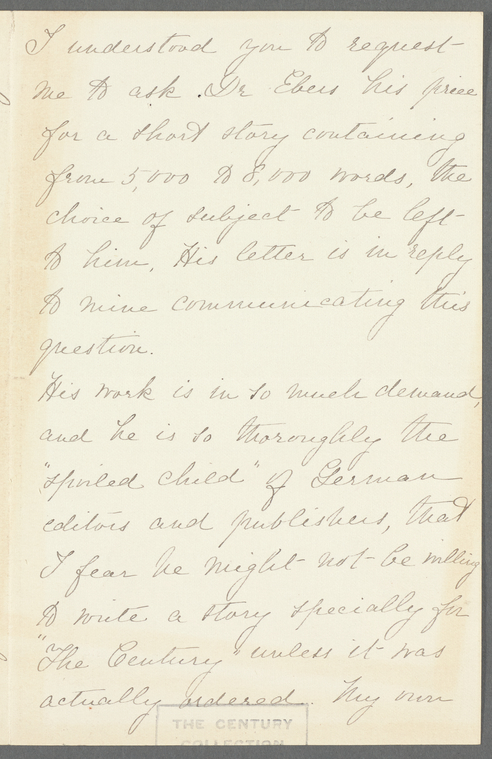 I understood you to request
me to ask . Dr Ebers his price
for a short story containing
from 5,000 to 8,000 words, the
choice of subject to be left
to him. His letter is in reply
to mine communicating this
question.
His work is in so much demand,
and he is so thoroughly the
"spoiled child" of German
editors and publishers, that
I fear he might not be willing
to write a story specially for
"The Century" unless it was
actually ordered. My own
THE CENTURY
COLLECTION